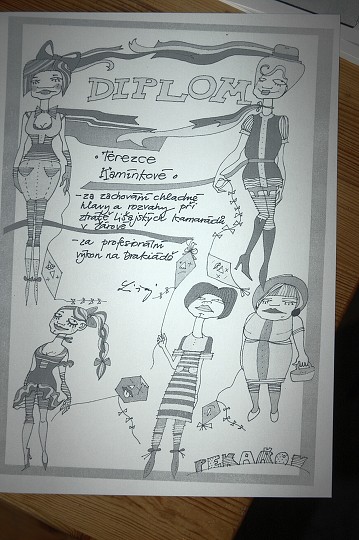 DIPLOM
• Terezce
Kamínkové •
- za zachování chladné
hlavy a rozvahy při
ztrátě Lišajských kamarádů
v Žárově
- za profesionální
výkon na Drakiádě